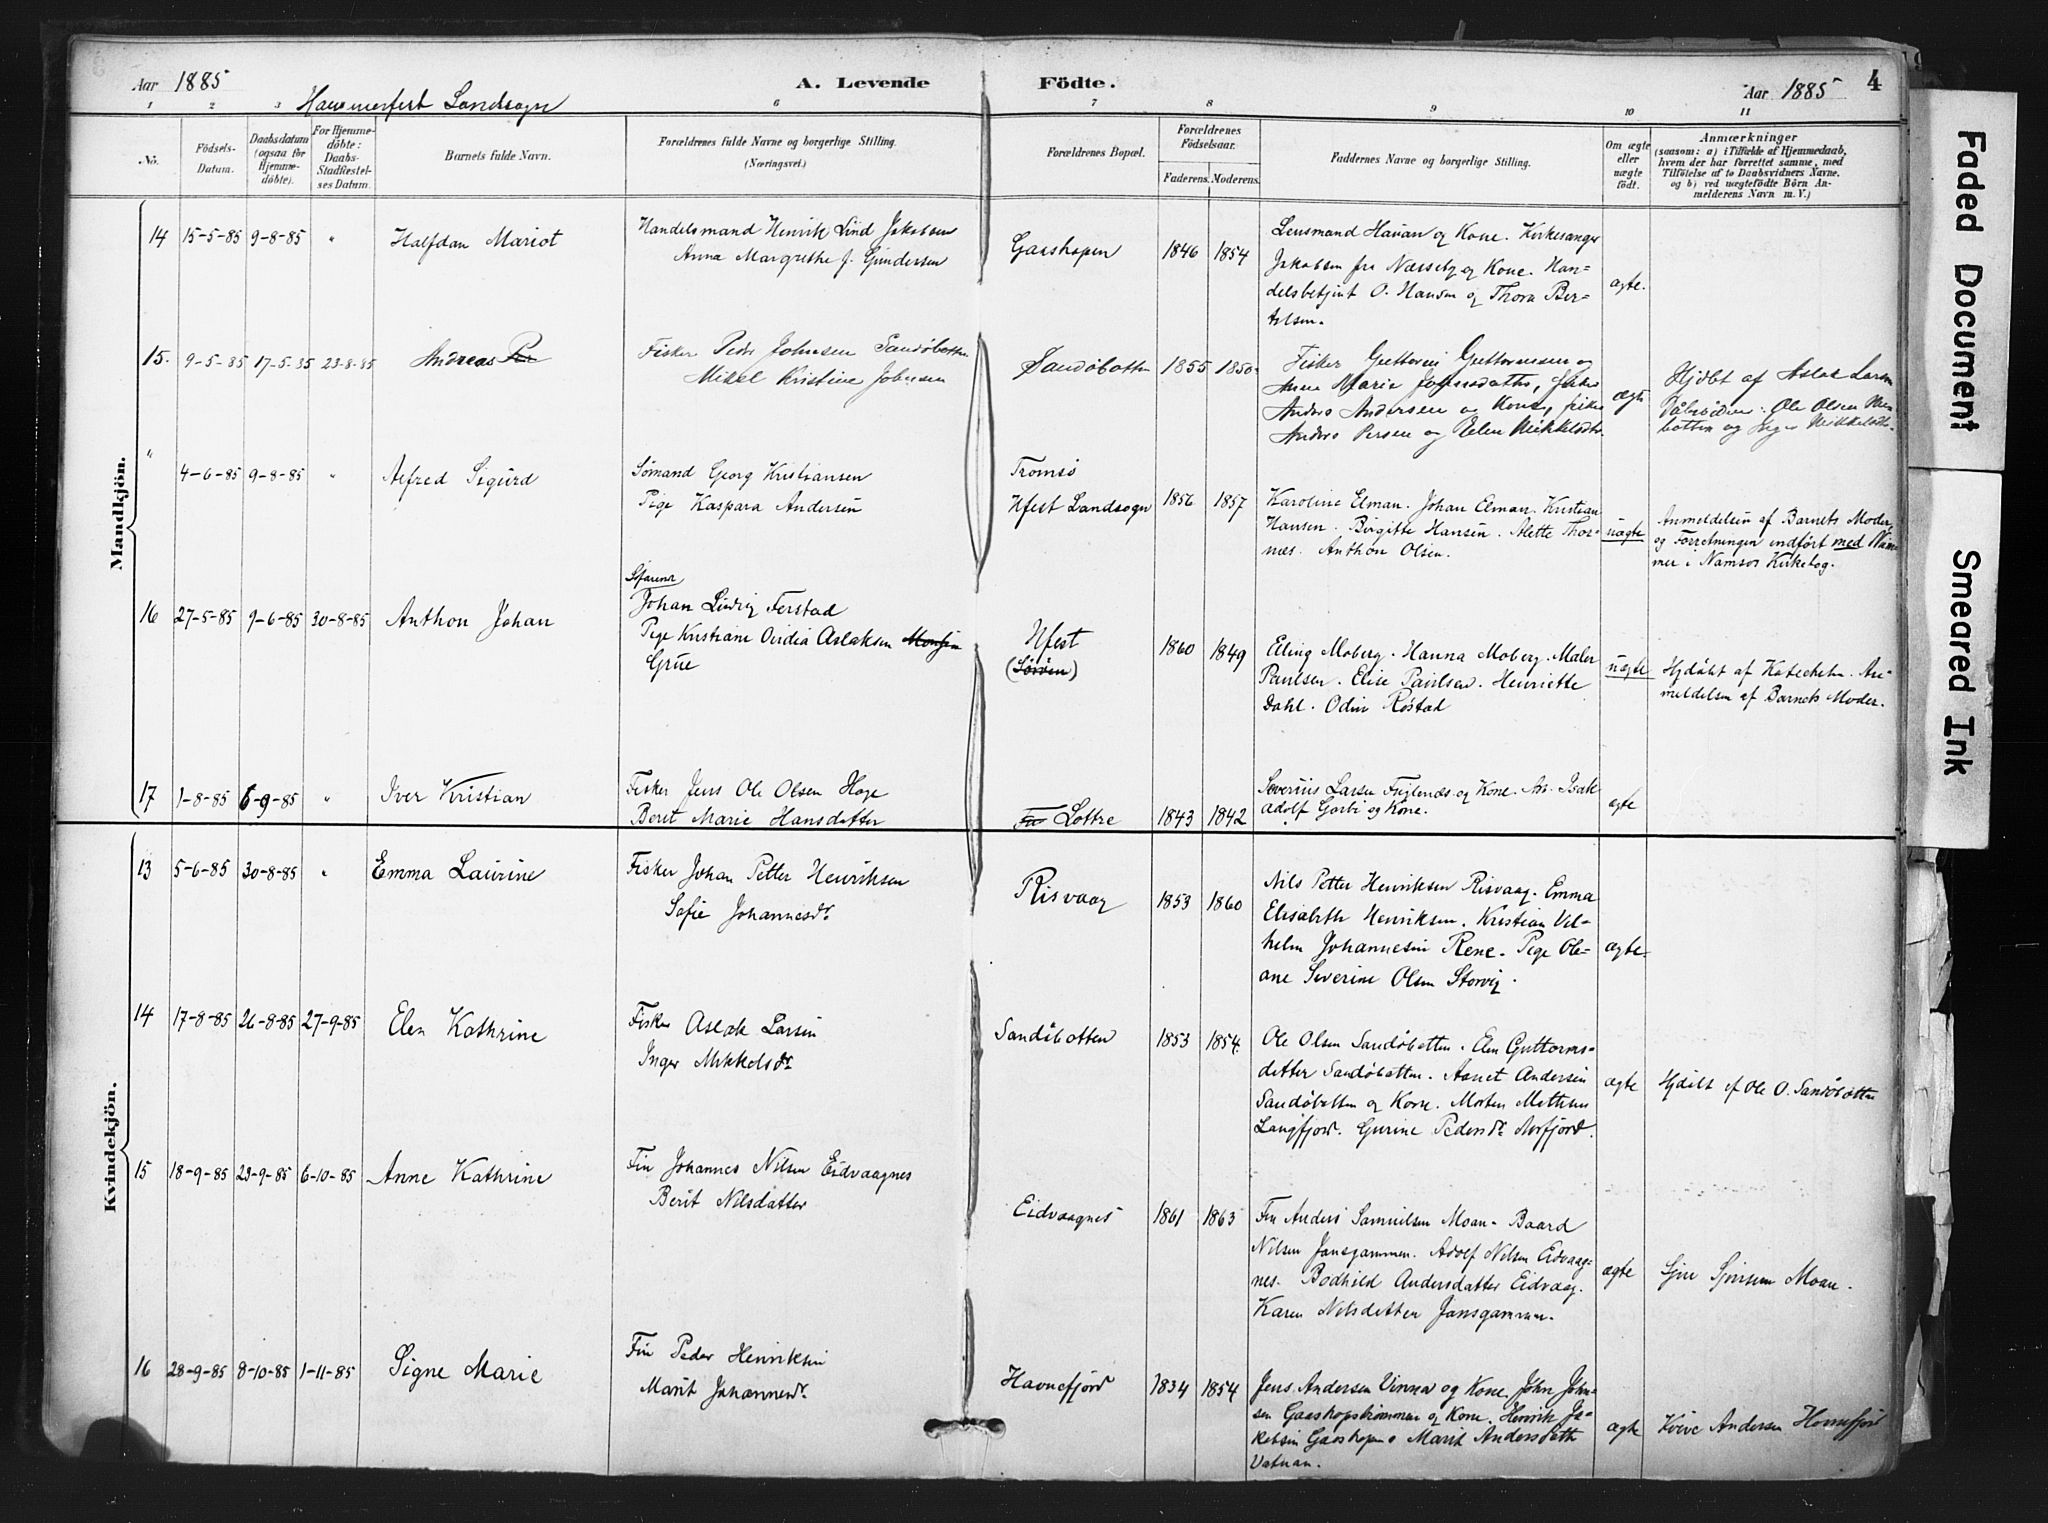 Aar 1885
A. Levende Födte.
Aar 1885
4
Hammerfest Landsogn
1 2 3 6 7 8 9 10 11
No.
Födsels-Datum.
Daabsdatum (ogsaa for Hjemmedöbte).
For Hjemmedöbte: Daabs-Stadfestelses Datum.
Barnets fulde Navn.
Forældrenes fulde Navne og borgerlige Stilling. (Næringsvei.)
Forældrenes Bopæl.
Forældrenes Födselsaar.
Faderens. Moderens.
Faddernes Navne og borgerlige Stilling.
Om ægte eller uægte födt.
Anmærkninger
(saasom: a) i Tilfælde af Hjemmedaab, hvem der har forrettet samme, med Tilföielse af to Daabsvidners Navne, og b) ved uægtefödte Börn Anmelderens Navn m. V.)
Mandkjön.
14 15-5-85 9-8-85 " Halfdan Mariot
Handelsmand Henrik Lind Jakobsen
Anna Margrethe f. Gundersen
Gaashopen 1846 1854
Lensmand Hauan og Kone. Kirkesanger
Jakobsen fra Næsseby og Kone. Han-
delsbetjent O. Hansen og Thora Ber-
telsen.
ægte.
15. 9-5-85 17-5-85 23-8-85 Andreas Per
Fisker Peder Johnsen Sandöbotten
Mikel Kristine Johnsen
Sandöbotten 1855 1850
Fisker Guttorm Guttormsen og
Anne Marie Johnsdatter, fisker
Anders Andersen og Kone, fisker
Anders Persen og Elen Mikkelsdtr.
ægte
Hjdbt af Aslak Larsen
Dåbsvidner: Ole Olsen San
botten og Inger Mikkelsdtr.
" 4-6-85 9-8-85 " Alfred Sigurd
Sömand Georg Kristiansen
Pige Kaspara Andersen
Tromsö
Hfest Landsogn 1856 1857
Karoline Elman. Johan Elman. Kristian
Hansen. Birgitte Hansen. Alette Thor-
næs. Anthon Olsen.
uægte
Anmeldelsen af Barnets Moder,
og Forretningen indfört med Num-
mer i Namsos Kirkebog.
16 27-5-85 9-6-85 30-8-85 Anthon Johan
Johan Ludvig Ferstad
Pige Kristiane Ovidia Aslaksen
Grue
Hfest
(Söröen) 1860 1849
Elling Moberg. Hanna Moberg. Maler
Paulsen. Elise Paulsen. Henriette
Dahl. Odin Röstad
uægte
Hjdöbt af Katecheten. An-
meldelsen af Barnets Moder.
17 1-8-85 6-9-85 " Iver Kristian
Fisker Jens Ole Olsen Hoge
Berit Marie Hansdatter
Lottre 1843 1842
Severius Larsen Fuglenæs og Kone. An. Isak
Adolf Garbi og Kone.
ægte
Kvindekjön.
13 5-6-85 30-8-85 " Emma Laurine
Fisker Johan Petter Henriksen
Sofie Johannesdr
Risvaag 1853 1860
Nils Petter Henriksen Risvaag. Emma
Elisabeth Henriksen. Kristian Vil-
helm Johannesen Rene. Pige Ole-
ane Severine Olsen Storvig.
ægte
14 17-8-85 26-8-85 27-9-85 Elen Kathrine
Fisker Aslak Larsen
Inger Mikkelsdr
Sandöbotten 1853 1854.
Ole Olsen Sandöbotten. Elen Guttorms-
datter Sandöbotten. Asmet Andersen
Sandöbotten og Kone. Morten Mathisen
Langfjord. Gurine Pedersdr
ægte
Hjdöbt af Ole O. Sandöbotten
15 18-9-85 23-9-85 6-10-85 Anne Kathrine
Fin Johannes Nilsen Eidvaagnes
Berit Nilsdatter
Eidvaagnes 1861 1863
Fin Anders Samuelsen Moan. Baard
Nilsen Jansgammen. Adolf Nilsen Eidvaag-
nes. Bodhild Andersdatter Eidvaag.
Karen Nilsdatter Jansgammen.
ægte
Sjur Sjursen Moan.
16 28-9-85 8-10-85 1-11-85 Signe Marie
Fin Peder Henriksen
Marit Johannesdr.
Havnefjord 1834 1854
Jens Andersen Vinna og Kone. John John-
sen Gaashopströmmen og Kone. Henrik Ja-
kobsen Gaashopen o Marit Andersdatt
Vatnan.
ægte
Andersen Havnefjord
Faded Document
Smeared Ink